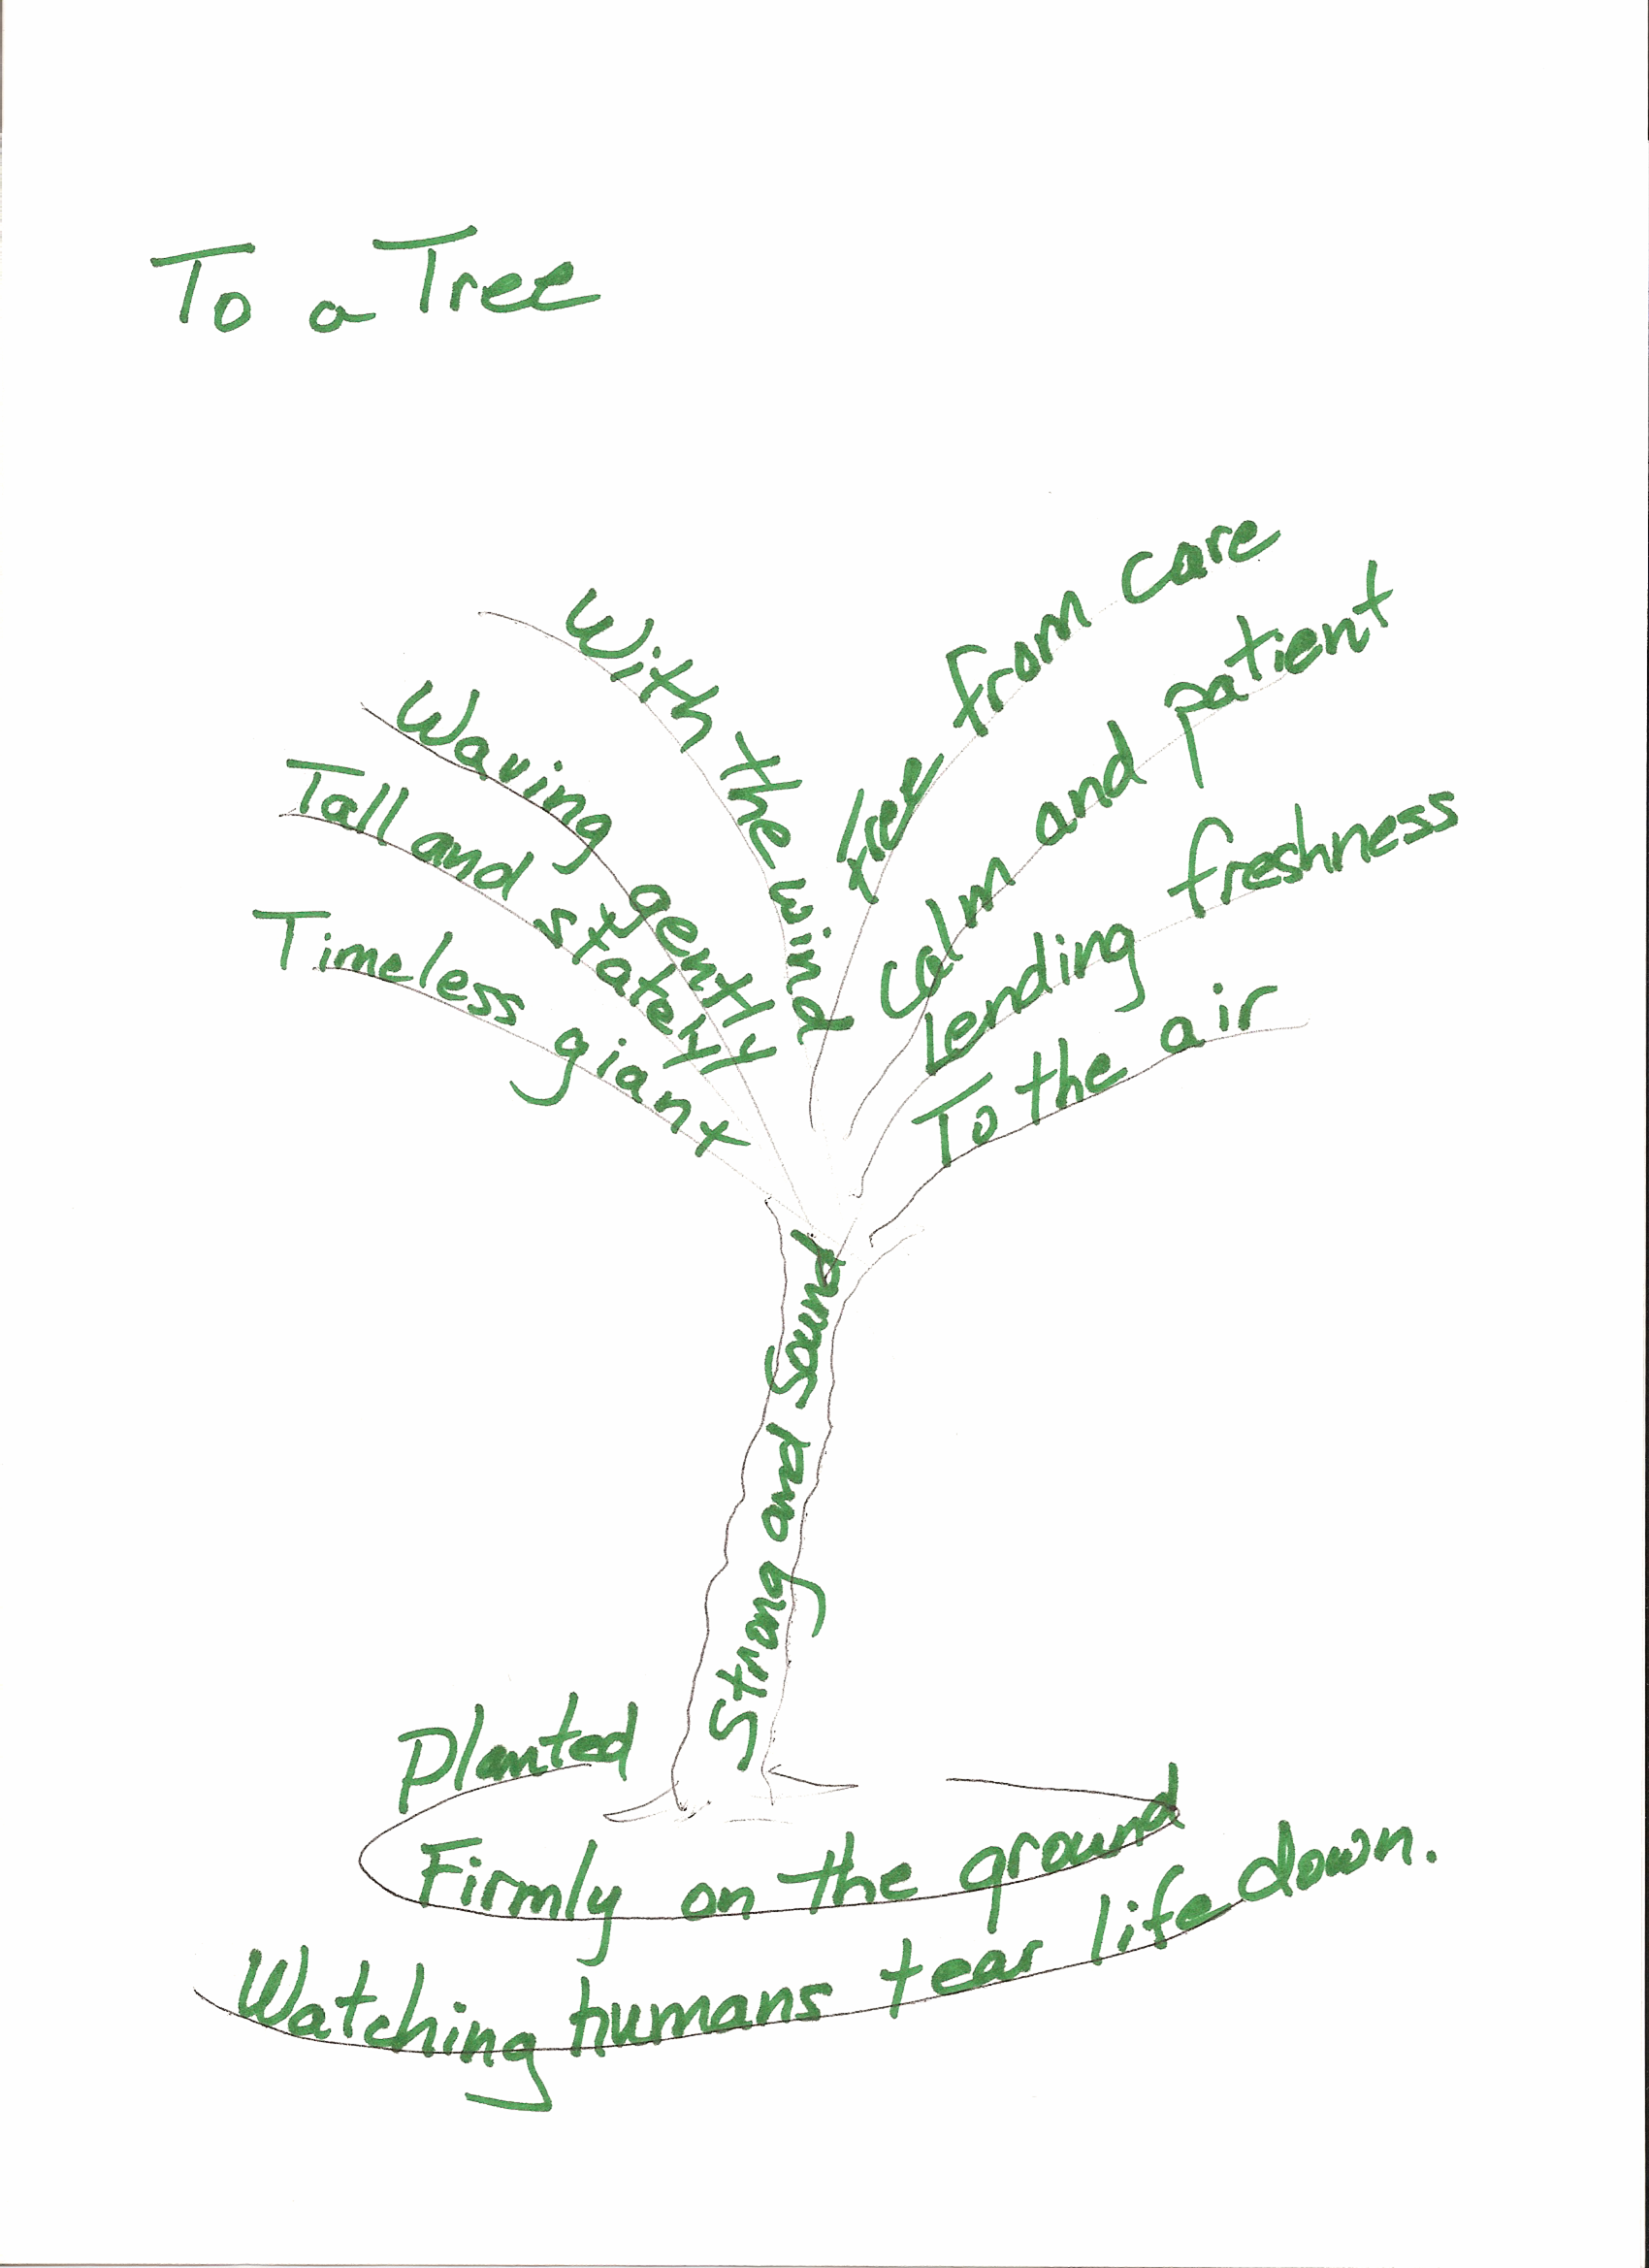 To a Tree
Timeless giant
Tall and stately
Waving gently
With the wind
Free from care
Calm and patient
Lending freshness
To the air
Strong and Sound
Planted
Firmly on the ground
Watching humans tear life down.